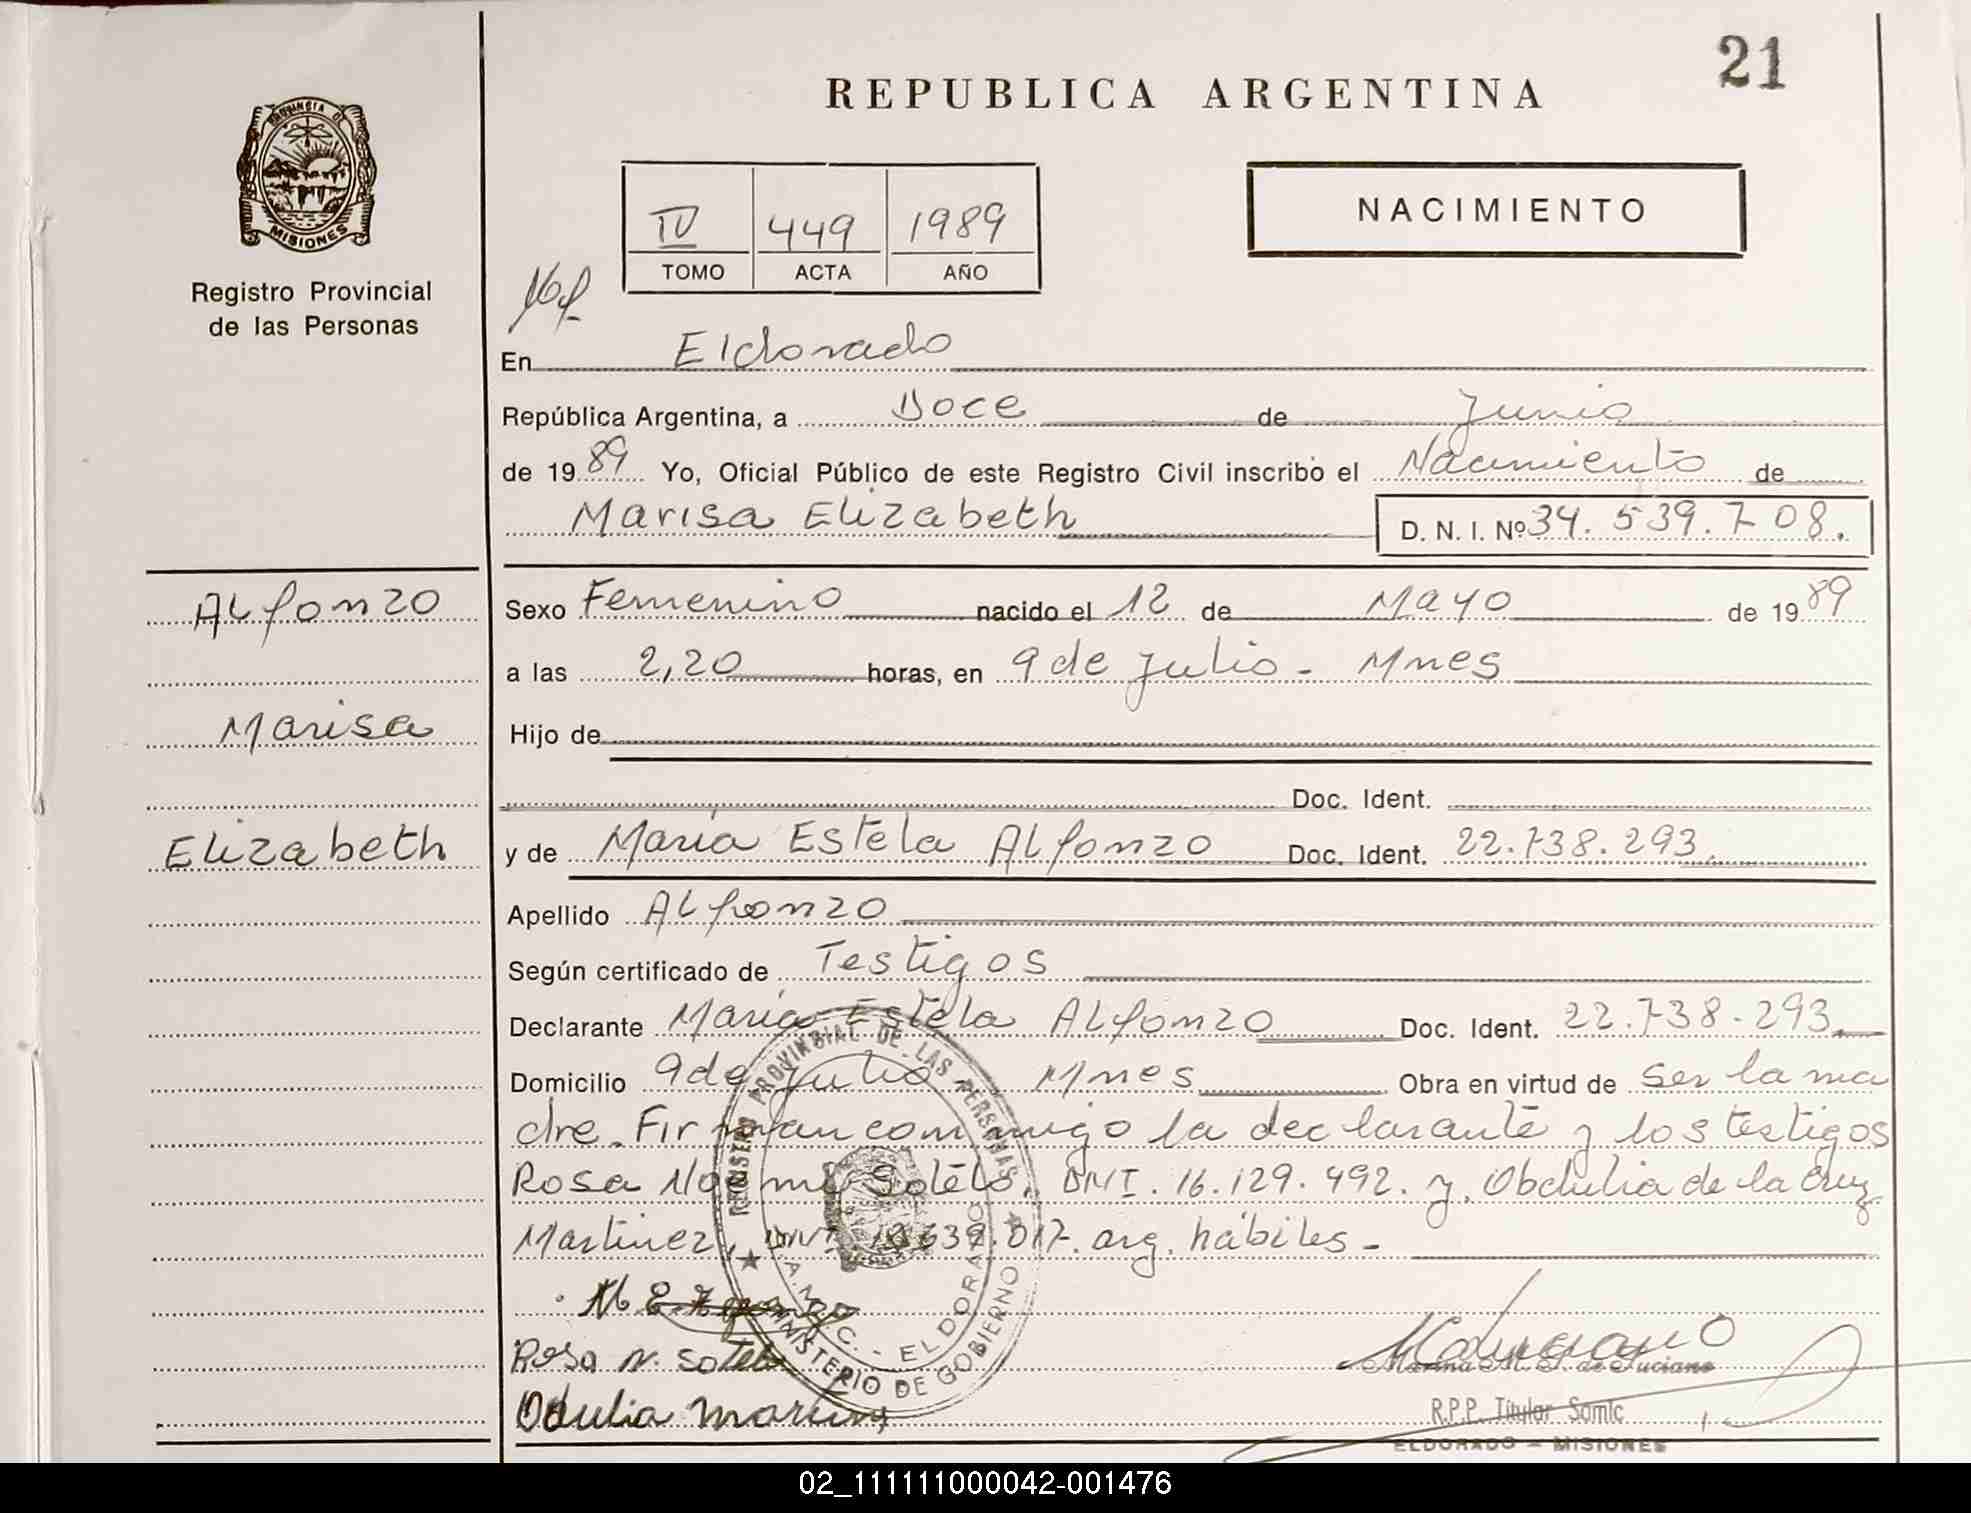 21
REPUBLICA ARGENTINA
PROVINCIA DE
MISIONES
Registro Provincial
de las Personas
IV 449 1989
TOMO ACTA AÑO
NACIMIENTO
En Eldorado
República Argentina, a Doce de Junio
de 1989 Yo, Oficial Público de este Registro Civil inscribo el Nacimiento de
Marisa Elizabeth D. N. I. Nº 34.539.708.
Alfonzo
Marisa
Elizabeth
Sexo Femenino nacido el 12 de Mayo de 1989
a las 2,20 horas, en 9 de Julio - Mnes
Hijo de
Doc. Ident.
y de María Estela Alfonzo Doc. Ident. 22.738.293.
Apellido Alfonzo
Según certificado de Testigos
Declarante María Estela Alfonzo Doc. Ident. 22.738.293.
Domicilio 9 de Julio Mnes Obra en virtud de ser la ma
dre. Firman conmigo la declarante y los testigos
Rosa Noemi Sotelo, DNI. 16.129.492. y, Obdulia de la Cruz
Martinez, DNI arg. hábiles -
Rosa N. Sotelo
Odulia Martinez
REGISTRO PROVINCIAL DE LAS PERSONAS
MINISTERIO DE GOBIERNO
ELDORADO
Marina M. S. de Luciano
R.P.P. Titular Somic
ELDORADO - MISIONES
02_111111000042-001476